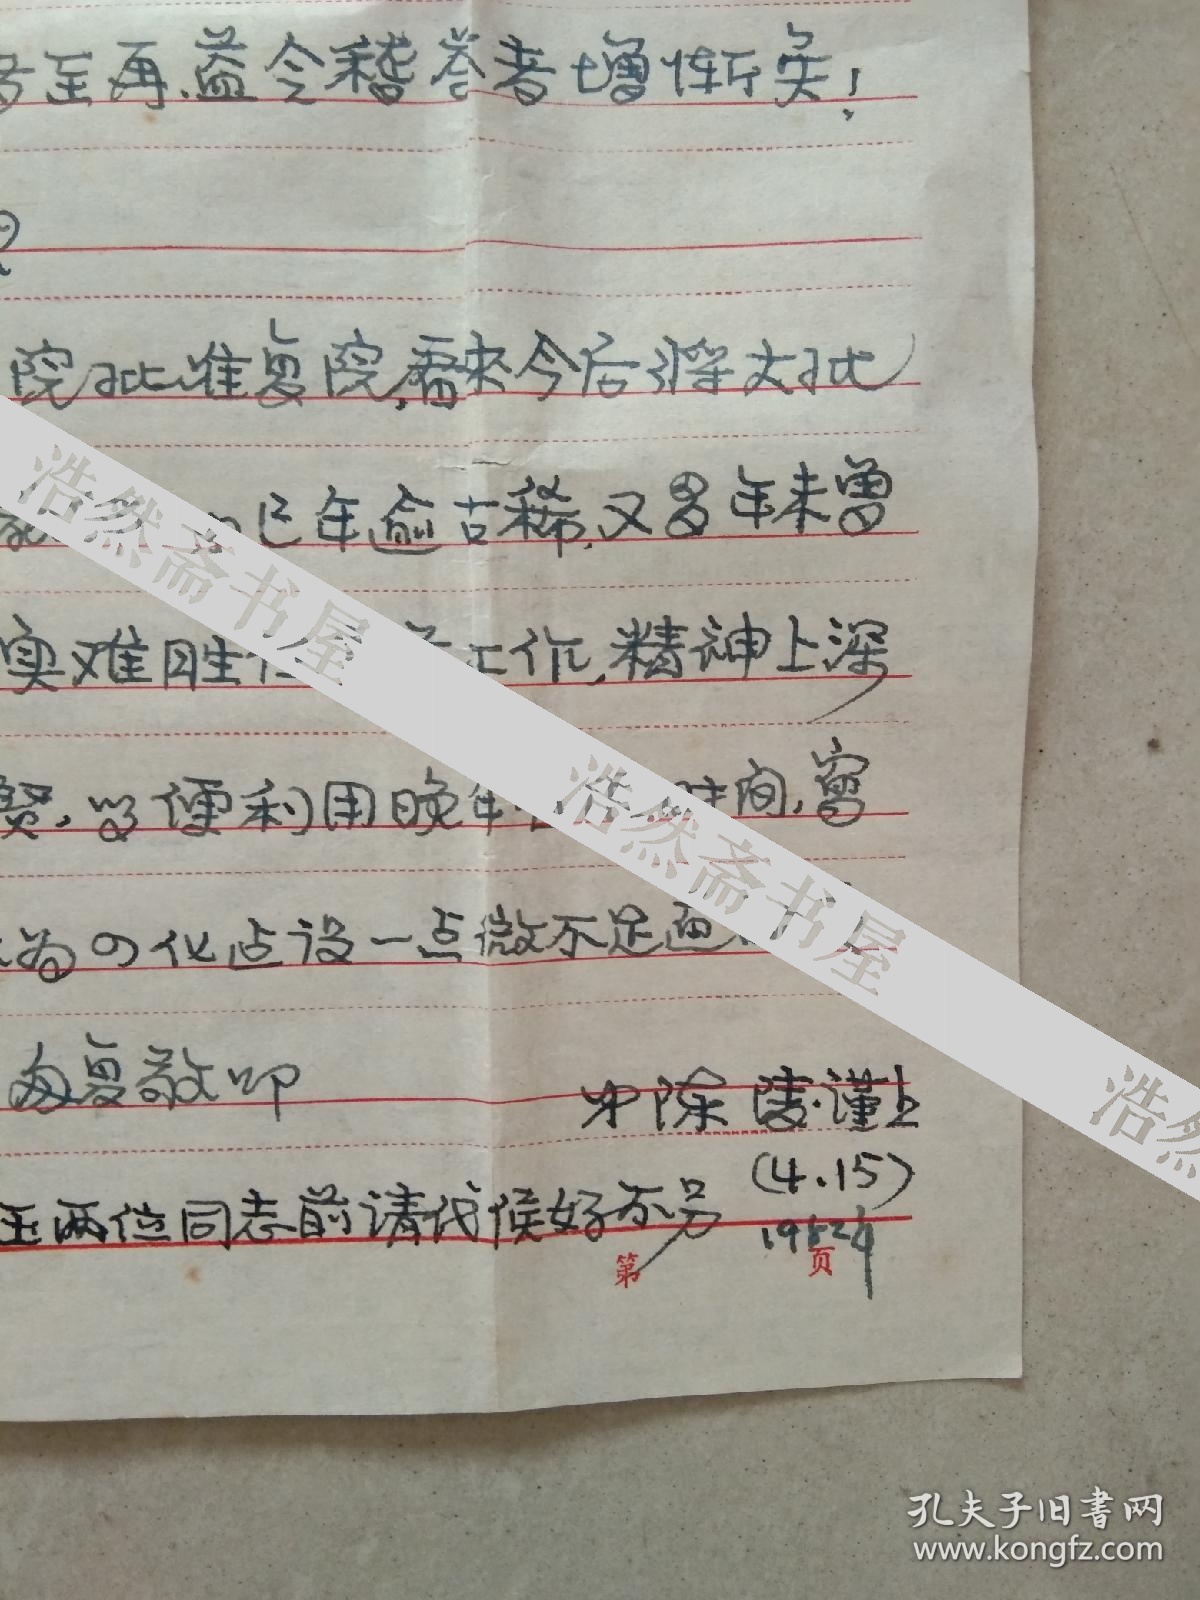 至再、益令稽答者增惭矣!
院批准复院,看来今后将大批
已年逾古稀,又多年未曾
实难胜 工作,精神上深
贤,以便利用晚年 时间,写
为四化建设一点微不足道
匆复敬叩
弟陈陵·谨上
(4.15)
玉两位同志前请代候好不另
1982年
第 页
浩然斋书屋
浩然斋书屋
浩然
孔夫子旧书网
www.kongfz.com